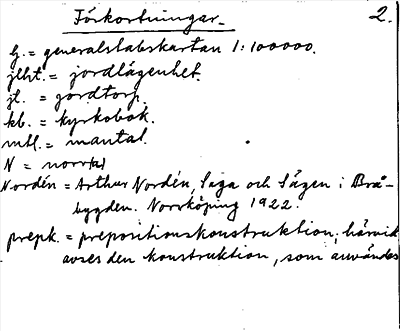 Förkortningar. 2.
g. = generalstabskartan 1:100000.
jlht. = jordlägenhet.
jt. = jordtorp.
kb. = kyrkobok.
mtl. = mantal.
N = norr(a)
Nordén = Arthur Nordén, Saga och Sägen i Brå-
bygden. Norrköping 1922.
prepk. = prepositionskonstruktion; härvid
avses den konstruktion, som användes